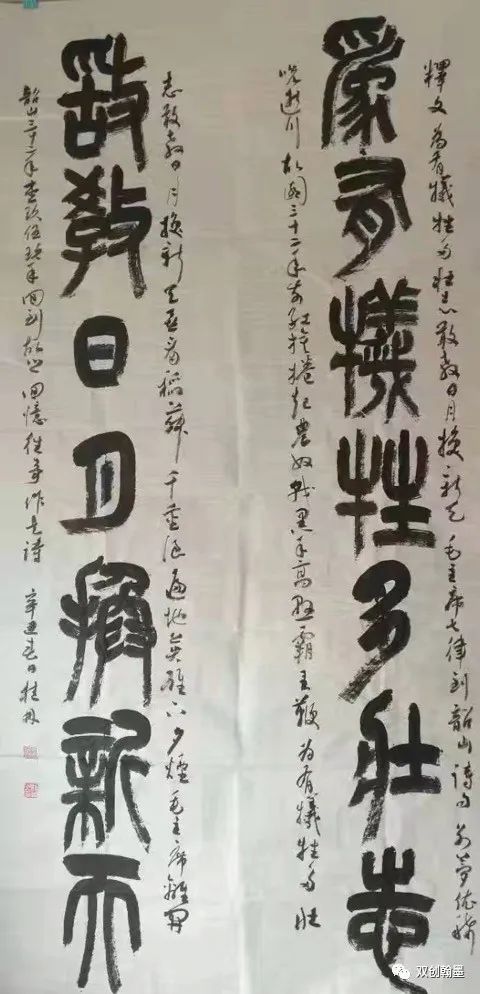 釋文為有犧牲多壯志敢教日月換新天 毛主席七律到韶山詩句 別夢依稀
為有犧牲多壯志
咒逝川故園三十二年前紅旗捲起農奴戟黑手高懸霸主鞭為有犧牲多壯
志敢教日月換新天喜看稻菽千重浪遍地英雄下夕煙毛主席離開
敢教日月換新天
韶山三十二年壹玖伍玖年回到故回憶往事作是詩 辛丑春日
双创翰墨